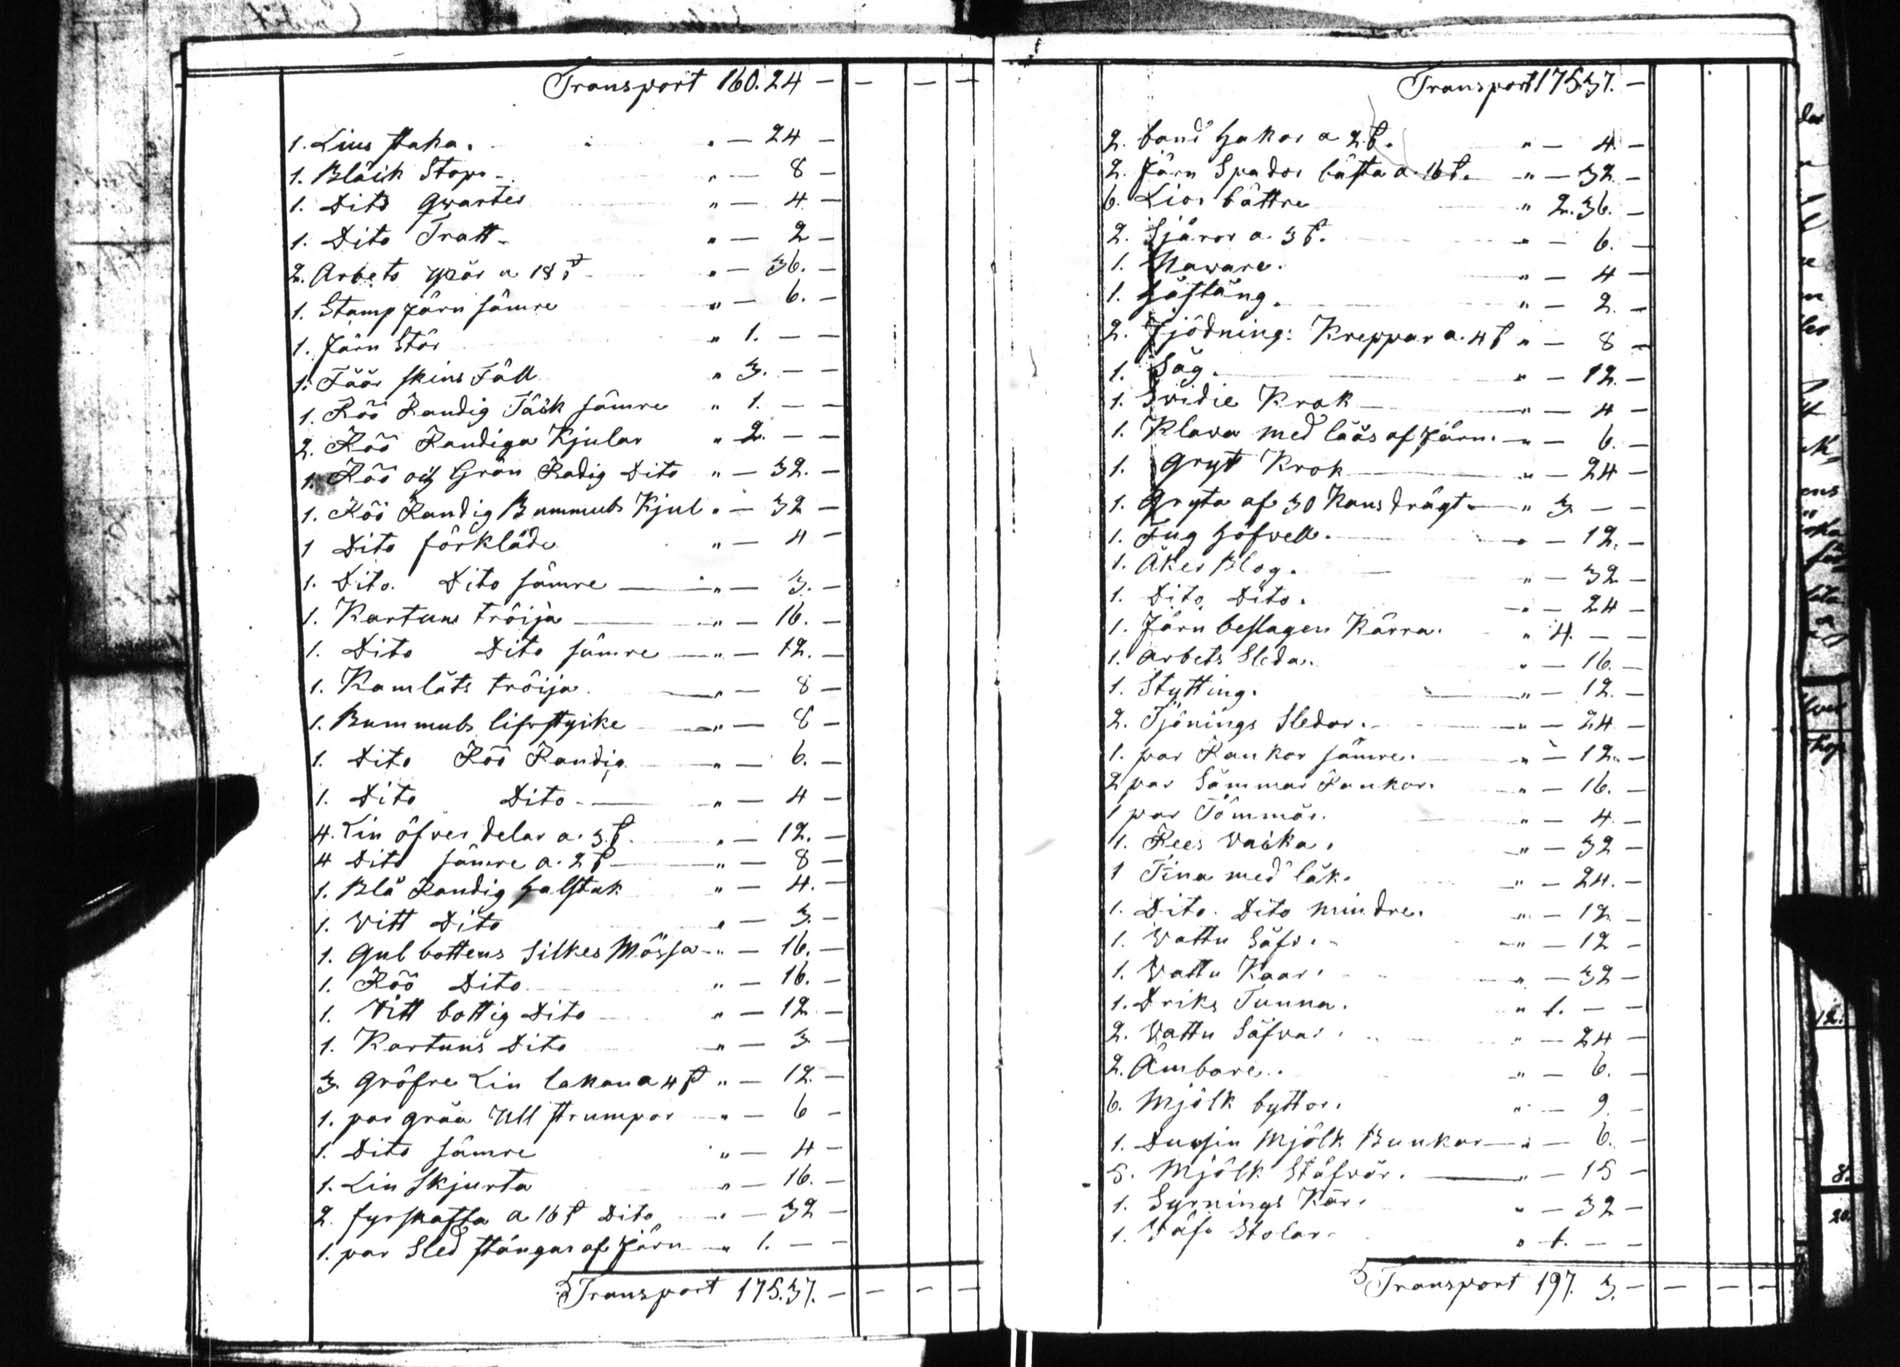 Transport 160.24 — — — —
1. Lius staka. " — 24 —
1. Bläck Stop " — 8 —
1. Dito Qvarter " — 4 —
1. Dito Tratt " — 2 —
2. Arbets a 18 " — 36. —
1. Stamp Järn sämre " — 6. —
1. Järn Stör " 1. — —
1. Fåår skins Fäll " 3. — —
1. Röö Randig Täck sämre " 1. — —
2. Röö Randiga Kjolar " 2. — —
1. Röö och Grön Radig Dito " — 32. —
1. Röö Randig Bummuls Kjul " — 32 —
1 Dito förkläde " — 4 —
1. Dito. Dito sämre " — 3. —
1. Kartuns tröija " — 16. —
1. Dito Dito sämre " — 12. —
1. Kamlåts tröija " — 8 —
1. Bummuls lifstycke " — 8 —
1. Dito Röö Randig " — 6. —
1. Dito Dito " — 4 —
4. Lin öfver delar a. 3 " — 12. —
4 Dito sämre a. 2 " — 8 —
1. Blå Randig halstuk " — 4. —
1. Vitt Dito " — 3. —
1. Gul bottens Silkes Mössa " — 16. —
1. Röö Dito " — 16. —
1. Vitt bottig Dito " — 12. —
1. Kartuns Dito " — 3 —
3. gröfre Lin lakan a 4 " — 12. —
1. par gråa Ull strumpor " — 6 —
1. Dito sämre " — 4 —
1. Lin Skjurta " — 16. —
2. fyrskafta a 16 Dito " — 32 —
1. par Sled stänger af Järn " 1. — —
Transport 175.37. — — — —
Transport 175.37. —
2. band hakor a 2. " — 4 —
2. Järn Spador bästa a. 16. " — 32. —
6. Lior bättre " 2. 36. —
2. Sjäror a. 3. " — 6. —
1. Naware. " — 4 —
1. Håftång. " — 2. —
2. Tjödning: Kreppar a. 4 " — 8 —
1. Såg. " — 12. —
1. Svidie Krok " — 4 —
1. Klava med låås af Järn. " — 6. —
1. Gryt Krok " — 24 —
1. Gryta af 30 Kans drägt. " 3. — —
1. Fug höfvell. " — 12. —
1. Åker Blog. " — 32 —
1. Dito Dito. " — 24 —
1. Järn beslagen Kärra. " 4. — —
1. Arbets Sleda. " — 16. —
1. Stytting. " — 12. —
2. Tjönings Sledor. " — 24 —
1. par Rankor sämre. " — 12. —
2 par Sämmar Rankor. " — 16. —
1 par Tömmär. " — 4. —
1. Rees " — 32 —
1 Tina med låk. " — 24. —
1. Dito. Dito mindre. " — 12 —
1. Vattu Såfv. " — 12 —
1. Vattu Kaar. " — 32 —
1. Driks Tunna. " 1. — —
2. Vattu Såfvar. " — 24 —
2. Ämbare. " — 6. —
6. Mjölk byttor. " — 9. —
1. Dussin Mjölk Bunkar " — 6. —
5. Mjölk Stäfvor. " — 15 —
1. Syrnings Kar. " — 32 —
1. Väf Stolar. " 1. — —
Transport 197. 3. — — — —